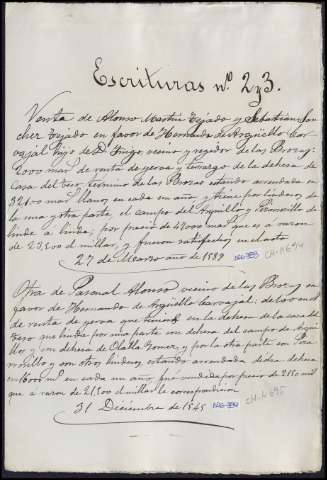 Escrituras nº 2 y 3.
Venta de Alonso Martin Tejado y Sebastian San
chez Tejado en favor de Hernando de Argüello Car
vajal hijo de D. Diego, vecino y regidor de las Brozas:
2000 mar. de renta de yerva y en la dehesa de
Casa del termino de las Brozas estando arrendada en
32100 mar. llanos en cada un año y tiene por linderos de
la una y otra parte, el campo del Argüello y
linde a linde; por precio de 47000 mar. que es a razon
de 23,500 el millar, y fueron satisfechos en el acto
27 de Marzo año de 1539 CH-A694
Otra de Pascual Alonso, vecino de las Brozas en
favor de Hernando de Argüello Carvajal: de 100 m.
de renta de yerva que tenia en la dehesa de la casa del
que linda por una parte con dehesa del campo de Argüe
llo, y con dehesa de Olalla Gomez, y por la otra parte con
y con otros linderos estando arrendada dicha dehesa
en m. en cada un año fué vendida por precio de 2150 m.
que a razon de 21,500 el millar le correspondieron
31 Diciembre de 1545 CH-A695